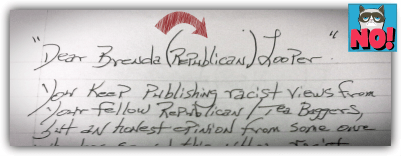 NO!
"Dear Brenda (Republican) Looper "
You Keep Publishing racist views from
your fellow Republican/Tea Baggers,
but an honest opinion from some one